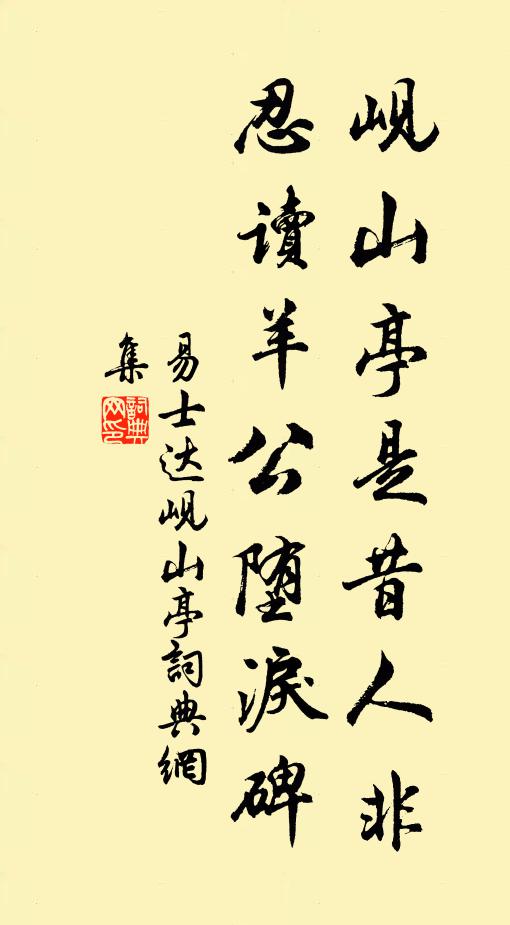 岘山亭是昔人非
忍讀羊公堕淚碑
易士达岘山亭詞典網
集
詞典
网印